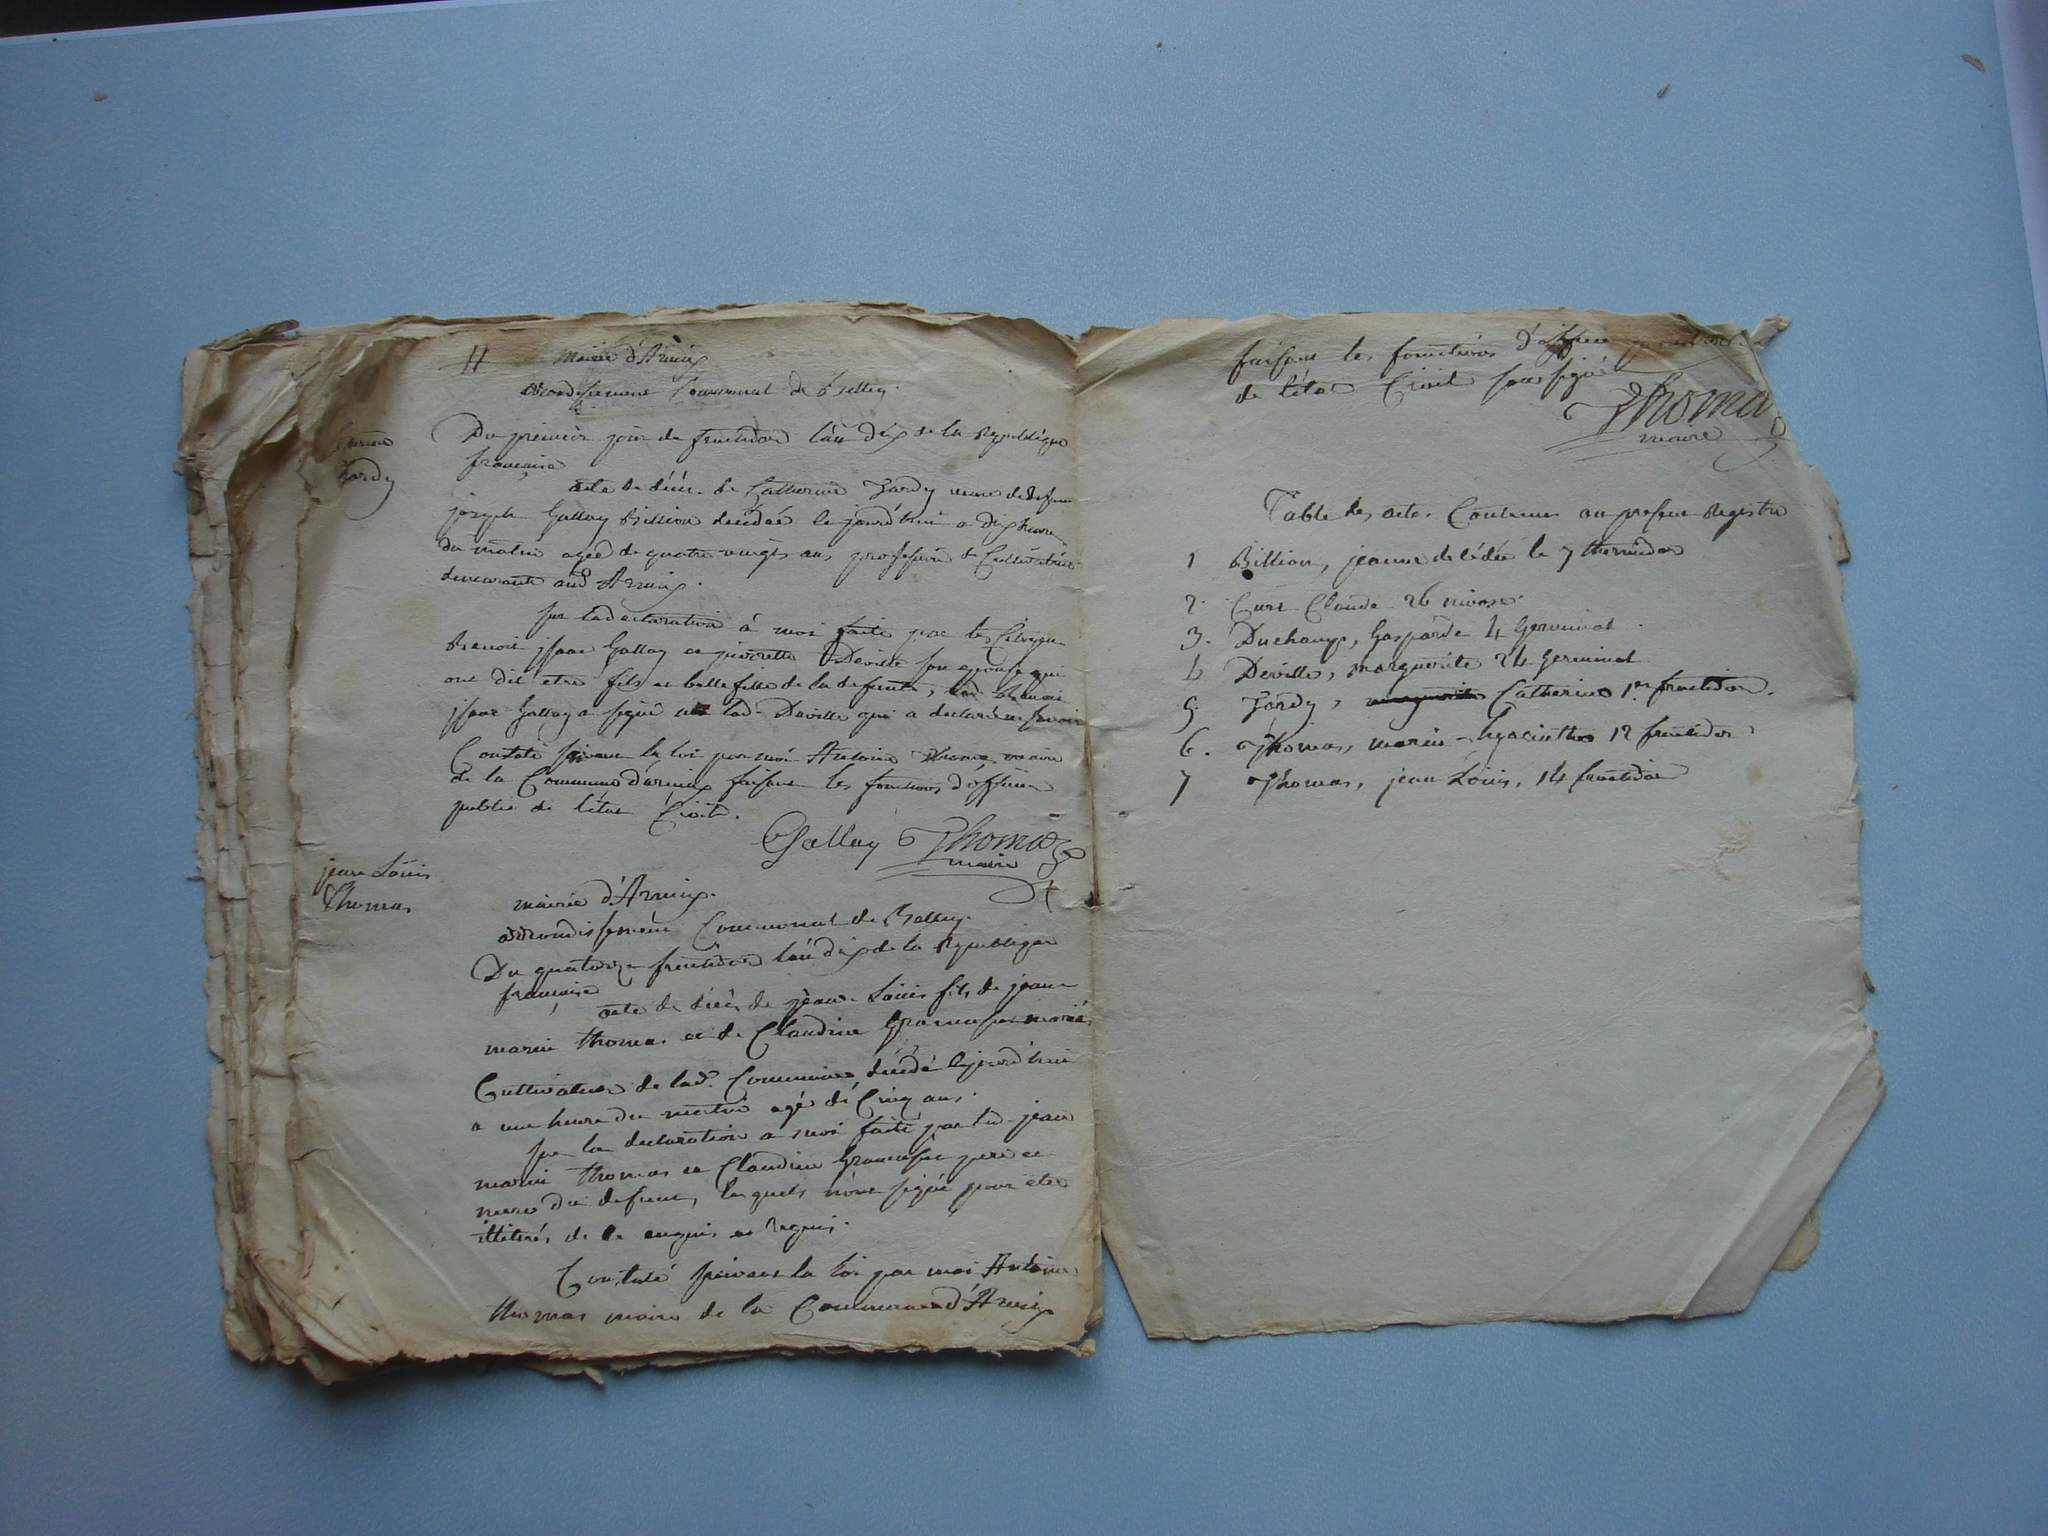 H
mairie d'Armix
arrondissement Communal de Belley.
Catherine
Tardy
Du premier jour de fructidor l'an dix de la Republique
française
acte de décès de Catherine Tardy veuve de defunt
joseph Gallay Billion decédée le jourd'hui a dix heures
du matin agée de quatre vingts ans, profession de Cultivatrice
demeurante aud Armix.
sur la declaration à moi faite par les Citoyens
Benoit jsaac Gallay et pierrette Deville son epouse qui
ont dit etre fils et belle fille de la defunte, led. Benoit
jsaac Gallay a signé lad. Deville qui a declaré ne savoir
Constaté suivant la loi par moi Antoine Thomas maire
de la Commune d'armix faisant les fonctions d'officier
public de l'état Civil.
Gallay Thomas
maire
jean Louis
Thomas
mairie d'Armix.
arrondissement Communal de Belley.
Du quatorze fructidor l'an dix de la Republique
française
acte de décès de jean Louis fils de jean
marin thomas et de Claudine mariés
Cultivateurs de lad. Commune, decédé le jourd'hui
a une heure du matin agé de Cinq ans.
sur la declaration a moi faite par led. jean
marin thomas et Claudine pere et
mere du defunt, lesquels n'ont signé pour etre
illiterés de ce enquis et requis.
Constaté suivant la loi par moi Antoine
thomas maire de la Commune d'Armix
faisant les fonctions d'officier
de l'état Civil soussigné
Thomas
maire
Table des actes Contenus au present Registre
1 Billion, jeanne decédée le 7 thermidor
2. Curt Claude 26 nivose.
3. Duchamp, Gasparde 4 Germinal.
4 Deville, marguerite 24 Germinal
5. Tardy, marguerite Catherine 1er fructidor.
6. Thomas, marin-hyacinthe 12 fructidor
7 Thomas, jean Louis, 14 fructidor